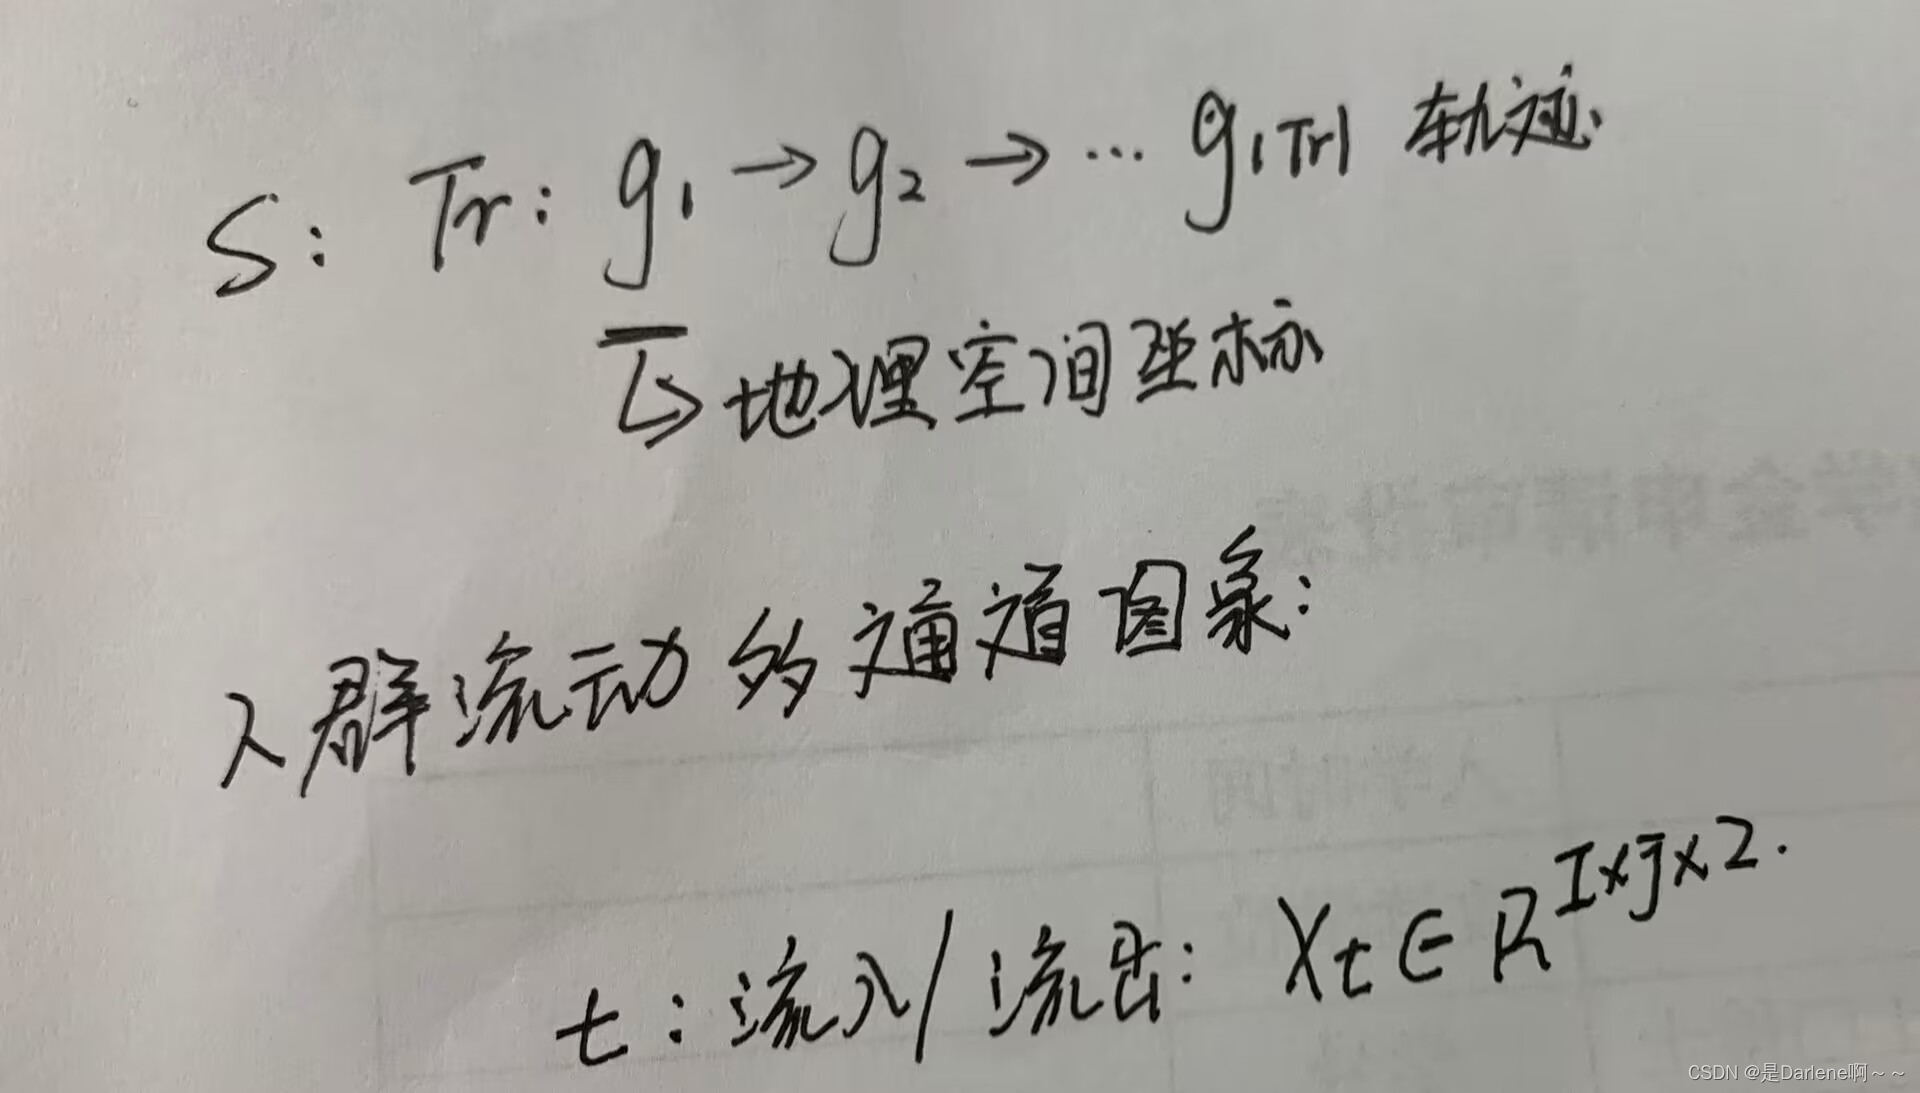 S: Tr: g₁ → g₂ → ... g|Tr| 轨迹
↳ 地理空间坐标
人群流动的通道图象:
t: 流入/流出: Xt ∈ R^I×J×2.
CSDN @是Darlene啊~~